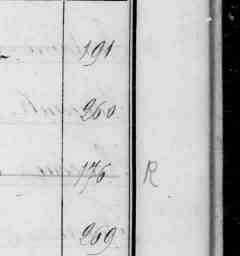 191
260
176 R
269